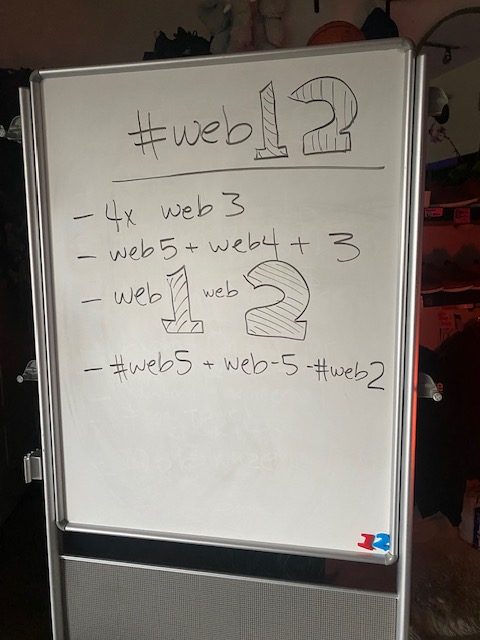 #web12
- 4x web3
- web5 + web4 + 3
- web1 web 2
- #web5 + web-5 -#web2
12